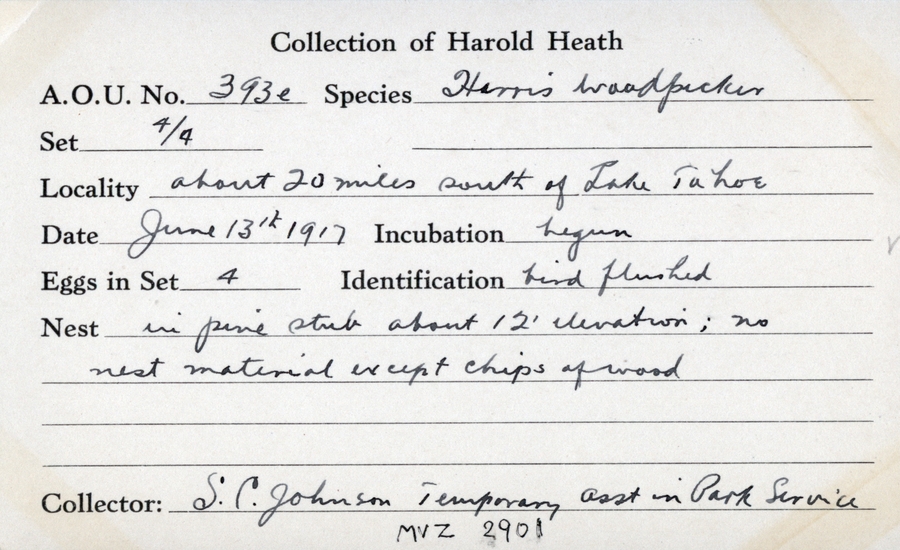 Collection of Harold Heath
A.O.U. No. 393e Species Harris Woodpecker
Set 4/4
Locality about 20 miles south of Lake Tahoe
Date June 13th 1917 Incubation begun
Eggs in Set 4 Identification bird flushed
Nest in pine stub about 12' elevation; no
nest material except chips of wood
Collector: S. C. Johnson Temporary asst in Park Service
MVZ 2901